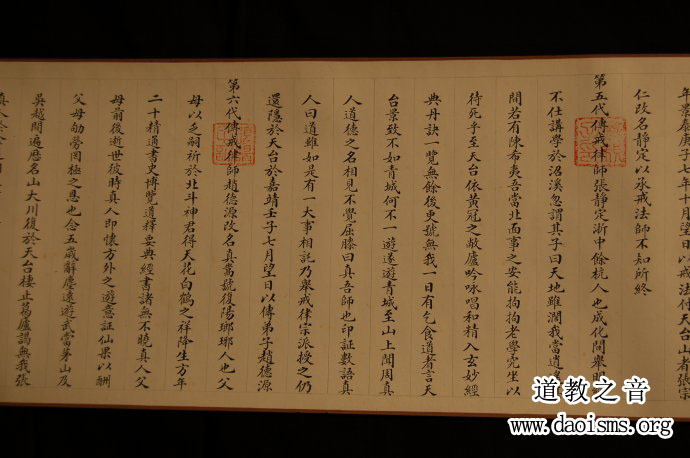 年景泰庚子七年十月望日以戒法付天台山者張宗
仁改名靜定以承戒法師不知所終
第五代傳戒律師張靜定浙中餘杭人也成化間舉明
不仕講學於沼溪忽謂其子曰天地雖濶我當逍
間若有陳希夷吾當北面事之安能拘拘老學究坐以
待死乎至天台依黃冠之敝廬吟咏唱和精入玄妙經
典丹訣一覽無餘後更號無我一日有乞食道者言天
台景致不如青城何不一遊遂遊青城至山上聞周真
人道德之名相見不覺屈膝曰真吾師也印証數語真
人曰道雖如是有一大事相託乃舉戒律宗派授之仍
還隱於天台於嘉靖壬子七月望日以傳弟子趙德源
第六代傳戒律師趙德源改名真嵩號復陽瑯琊人也父
母以乏嗣祈於北斗神君得天花白鶴之祥降生方年
二十精通書史博覽道擇要典經書諸無不曉真人父
母前後逝世彼時真人即懷方外之遊意証仙果以酬
父母劬勞罔極之恩也念五歲辭塵遠遊武當茅山及
吳越間遍歷名山大川復於天台棲止茅廬謁無我張
真人
道教之音
www.daoisms.org